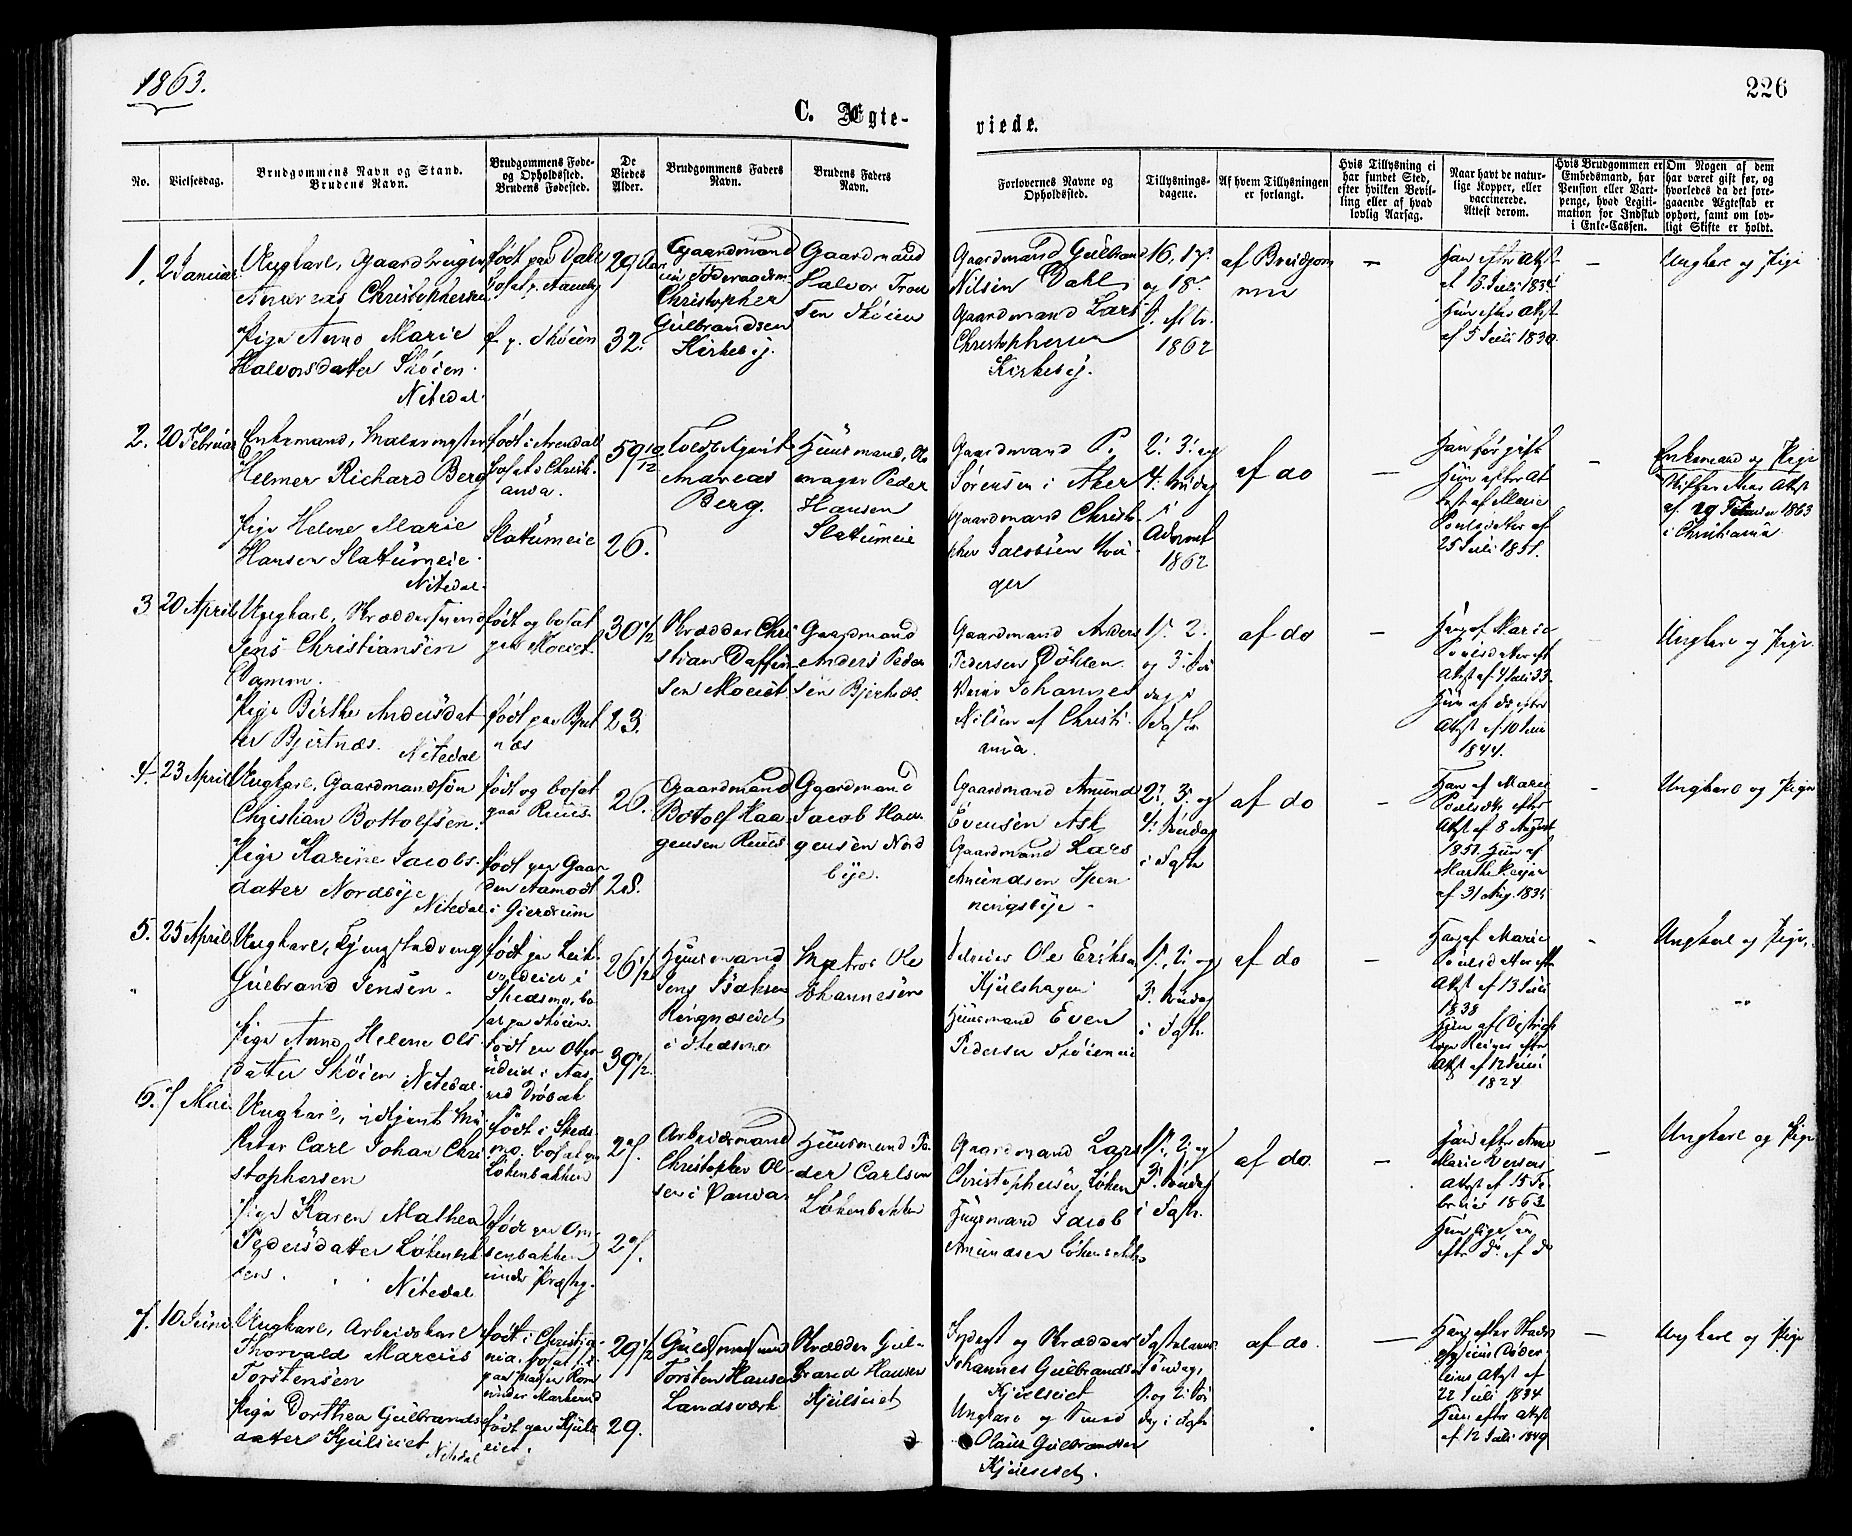 1863.
226
C. Ægte-
viede.
No.
Vielsesdag.
Brudgommens Navn og Stand.
Brudens Navn.
Brudgommens Føde-
og Opholdssted.
Brudens Fødested.
De
Viedes
Alder.
Brudgommens Faders
Navn.
Brudens Faders
Navn.
Forlovernes Navne og
Opholdssted.
Tillysnings-
dagene.
Af hvem Tillysningen
er forlangt.
Hvis Tillysning ei
har fundet Sted,
efter hvilken Bevil-
ling eller af hvad
lovlig Aarsag.
Naar havt de natur-
lige Kopper, eller
vaccinerede.
Attest derom.
Hvis Brudgommen er
Embedsmand, har
Pension eller Vart-
penge, hvad Legiti-
mation for Indskud
i Enke-Cassen.
Om Nogen af dem
har været gift før, og
hvorledes da det fore-
gaaende Ægteskab er
ophørt, samt om lov-
ligt Skifte er holdt.
1. 2 Januar
Ungkarl, Gaardbruger
Andreas Christophersen
Pige Anne Marie
Halvorsdatter Skøien
Nitedal.
født paa Dahl
f. p. Skøien
29 Aar
32.
Gaardmand
Christopher
Gulbrandsen
Kirkeby.
Gaardmand
Halvor
sen Skøien
Gaardmand Gulbrand
Nilsen Dahl
Gaardmand Lars
Christophersen
Kirkeby.
16, 17.
og 18.
1862
af Brudgom
men
–
Han efter Attest
Hun efter Attest
af 5 Juli 1830
–
Ungkarl og Pige
2. 20 Februar
Enkemand, Malermester
Helmer Richard Berg
Pige Helene Marie
Hansen Slatumeie
Nitedal.
født i Arendal
bosat i Christi-
ania.
Slatumeie
59 10/12
26.
Andreas
Berg.
Huusmand,
Peder
Hansen
Slatumeie
Gaardmand P.
Sørensen i Aker
Gaardmand Christo-
pher Jacobsen
2. 3. og
4. Søndag
i
Advent
1862
af do
–
Han før gift
Hun efter At-
test af Marie
Poulsdatter af
25 Juli 1851.
–
Enkemand og Pige
Skifter Attest
af 19 Februar 1863
i Christiania
3. 20 April
Ungkarl, Skræddersvend
Jens Christiansen
Damm.
Pige Birthe Andersdat-
ter Bjertnæs. Nitedal
født og bosat
paa Moeiet.
næs
30 1/2
23.
Skrædder Chri-
stian
sen Moeiet
Gaardmand
Anders Peder
sen Bjertnæs.
Gaardmand Anders
Pedersen Døhlen
Johannes
Nilsen af Christi-
ania.
1. 2.
og 3. Søn
dag i
Faste
af do
–
Han af Marie
Poulsdatter eft
Attst af 4 Juli 33
Hun af do efter
Attst af 10 Juni
1844.
Ungkarl og Pige.
4. 23 April
Ungkarl, Gaardmandssøn
Christian Bottolfsen.
Pige Karine Jacobs-
datter Nordbye
Nitedal
født og bosat
paa Ruus.
født paa Gaar-
den Aamodt
i Gierdrum
26.
28.
Gaardmand
Botolf Haa-
gensen Ruus
Gaardmand
Jacob Haa-
gensen Nord
bye.
Gaardmand Amund
Evensen Ask
Gaardmand Lars
Amundsen Spen-
ningsbye
2., 3. og
4. Søndag
i Faste
af do
–
Han af Marie
Poulsdtr efter
Attst af 8 August
1851. Hun af
Marthe
af 31 Aug. 1835
–
Ungkarl og Pige
5. 25 April
Ungkarl,
Gulbrand Jensen.
Pige Anne Helene Ols
datter Skøien Nitedal.
født paa
i
Skedsmo, bo-
sat paa Skøien.
født paa
i Aas
ved Drøbak
26 1/2
39 1/2.
Huusmand
Jens Isaksen
Ringnæseiet
i Skedsmo
Matros Ole
Johannesen
Ole Eriksen
Kjulshagen
Huusmand Even
Pedersen Skøieneie
1., 2. og
3. Søndag
i Fasten.
af do
–
Han af Marie
Poulsdatter eft
Attst af 13 Juli
1838
Hun af Districts
læge efter
Attst af 12 Juni
1824
–
Ungkarl og Pige.
6. 7 Mai
Ungkarl,
Carl Johan Chri
stophersen
Pige Karen Mathea
Pedersdatter Løkenbak
ken.
Nitedal
født i Skeds-
mo. bosat paa
Løkenbakken
født paa
senbakken
under Præstg.
27.
27.
Arbeidsmand
Christopher Ol-
sen i
Huusmand Pe-
der Carlsen
Løkenbakken
Gaardmand Lars
Christophersen Løken
Huusmand Jacob
Amundsen Løkenbakken
1., 2. og
3. Søndag
i Fasten.
af do.
–
Han efter Anne
Marie
Attst af 15 Fe-
bruar 1863
Hun ligesaa
efter do. af do
–
Ungkarl og Pige
7. 10 Juni
Ungkarl, Arbeidskarl
Thorvald Marcus
Torstensen
Pige Dorthea Gulbrands-
datter Kjulseiet
Nitedal
født i Christia-
nia, bosat
paa pladsen
under Markerud
født paa Kjuls-
eiet.
29 1/2
29.
Guldsmedsvend
Torsten Hansen
Landsværk
Skrædder Gul-
brand Hansen
Kjulseiet
og Skrædder
Johannes Gulbrandsen
Kjulseiet
Ungkarl og
Olaus Gulbrandsen
Kjulseiet.
Fastelavns
Søndag,
1. og 2. Søn
dag i Faste
af do.
–
Han efter Stads
physicus
Attst af
22 Juli 1834
Hun efter Attst
af 12 Juli 1849
–
Ungkarl og Pige